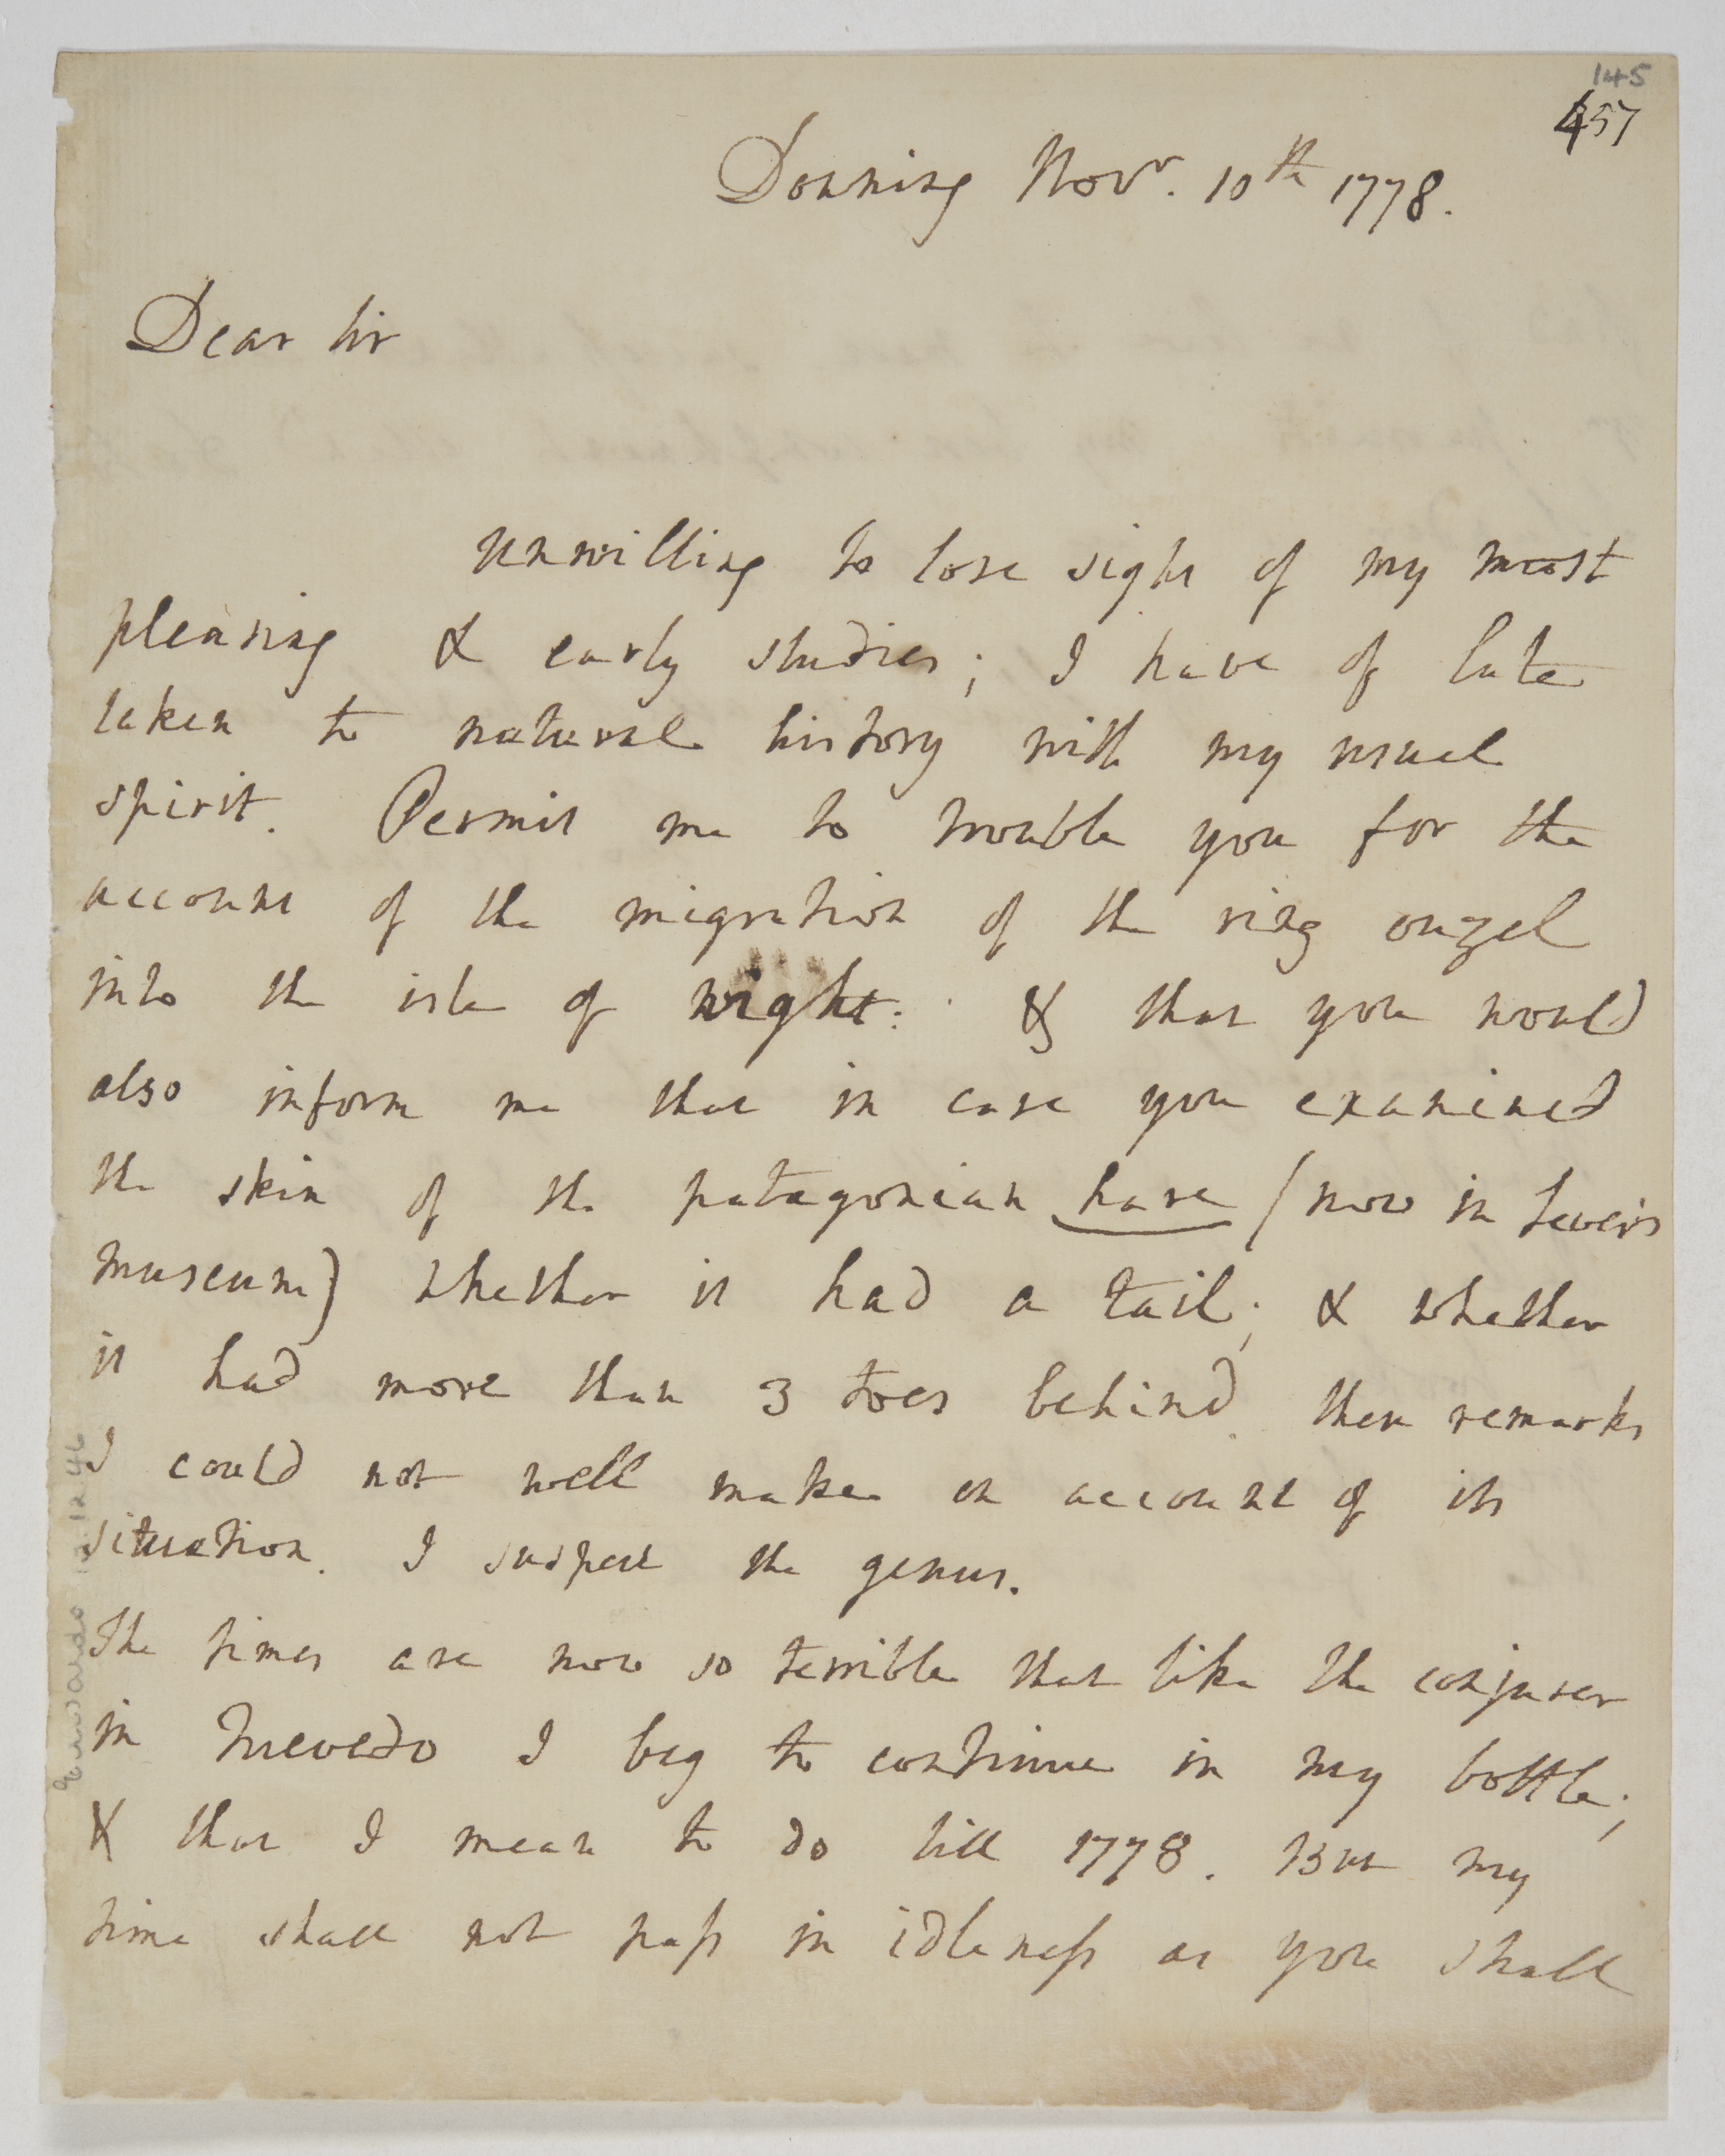 145
457
Downing Nov.r 10th 1778.
Dear Sir
unwilling to lose sight of my most
pleasing & early studies; I have of late
taken to natural history with my usual
spirit. Permit me to trouble you for the
account of the migration of the ring ouzel
into the isle of wight: & that you would
also inform me that in case you examined
the skin of the patagonian hare (now in Levers
museum) whether it had a tail; & whether
it had more than 3 toes behind. these remarks
I could not well make on account of its
situation. I suspect the genus.
The times are now so terrible that like the conjurer
in Quevedo I beg to continue in my bottle;
& that I mean to do till 1778. But my
time shall not pass in idleness as you shall
Edwards 12 46